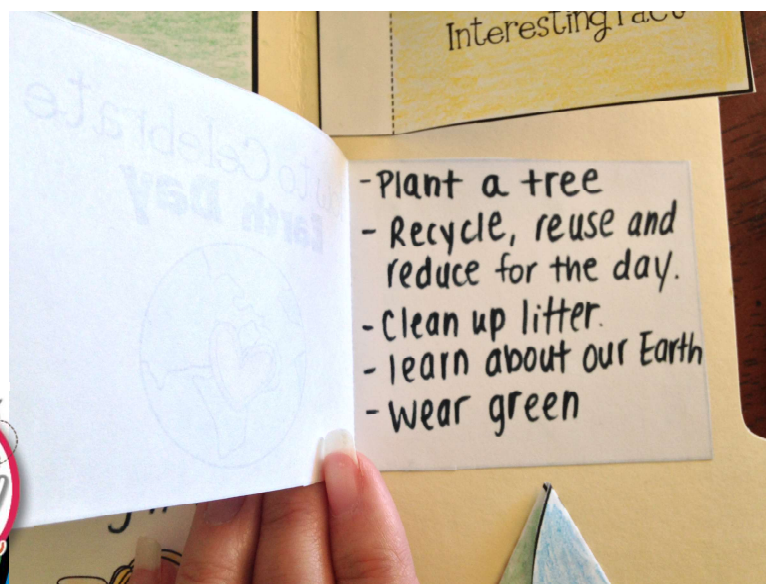 Interesting Fact
How to Celebrate
Earth Day
-Plant a tree
- Recycle, reuse and
reduce for the day.
-Clean up litter.
- learn about our Earth
- Wear green